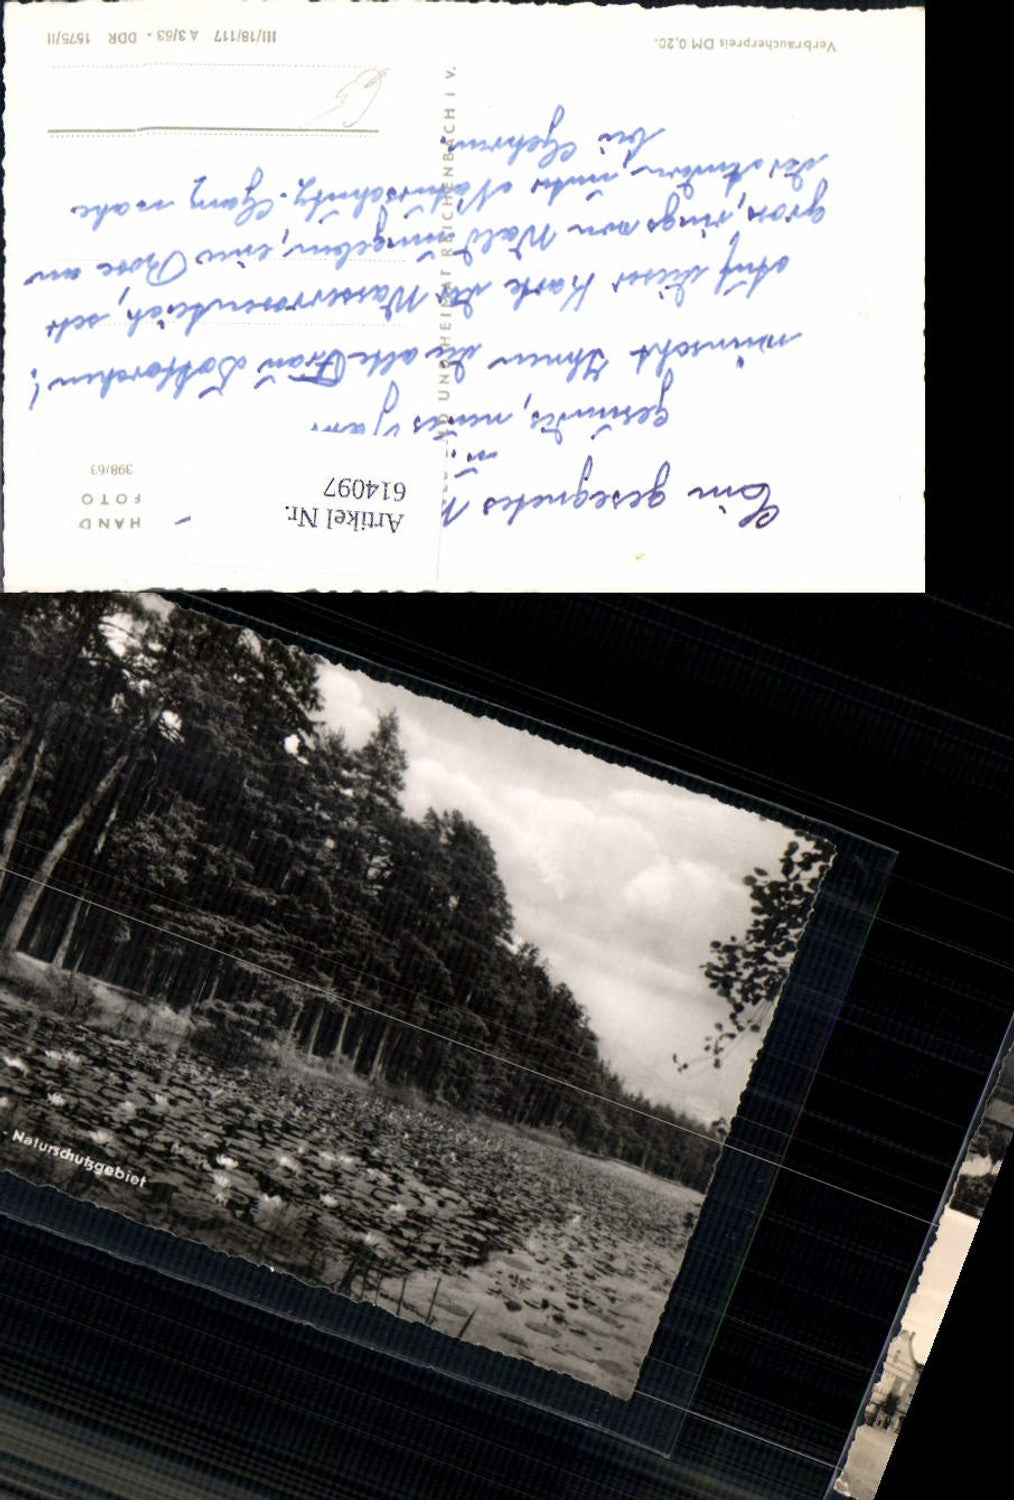 Ein gesegnetes
gesundes, neues Jahr
wünscht Ihnen die alte Frau
Auf dieser Karte der Wasserrosenteich, sehr
gross, rings von Wald umgeben, eine Rose an
der Andern, unter Naturschutz. Ganz nahe
bei Gehren.
Artikel Nr.
614097
HAND
FOTO
398/63
BILD UND HEIMAT REICHENBACH I. V.
Verbraucherpreis DM 0,20.
III/18/117 A 3/63 - DDR 1575/II
- Naturschutzgebiet